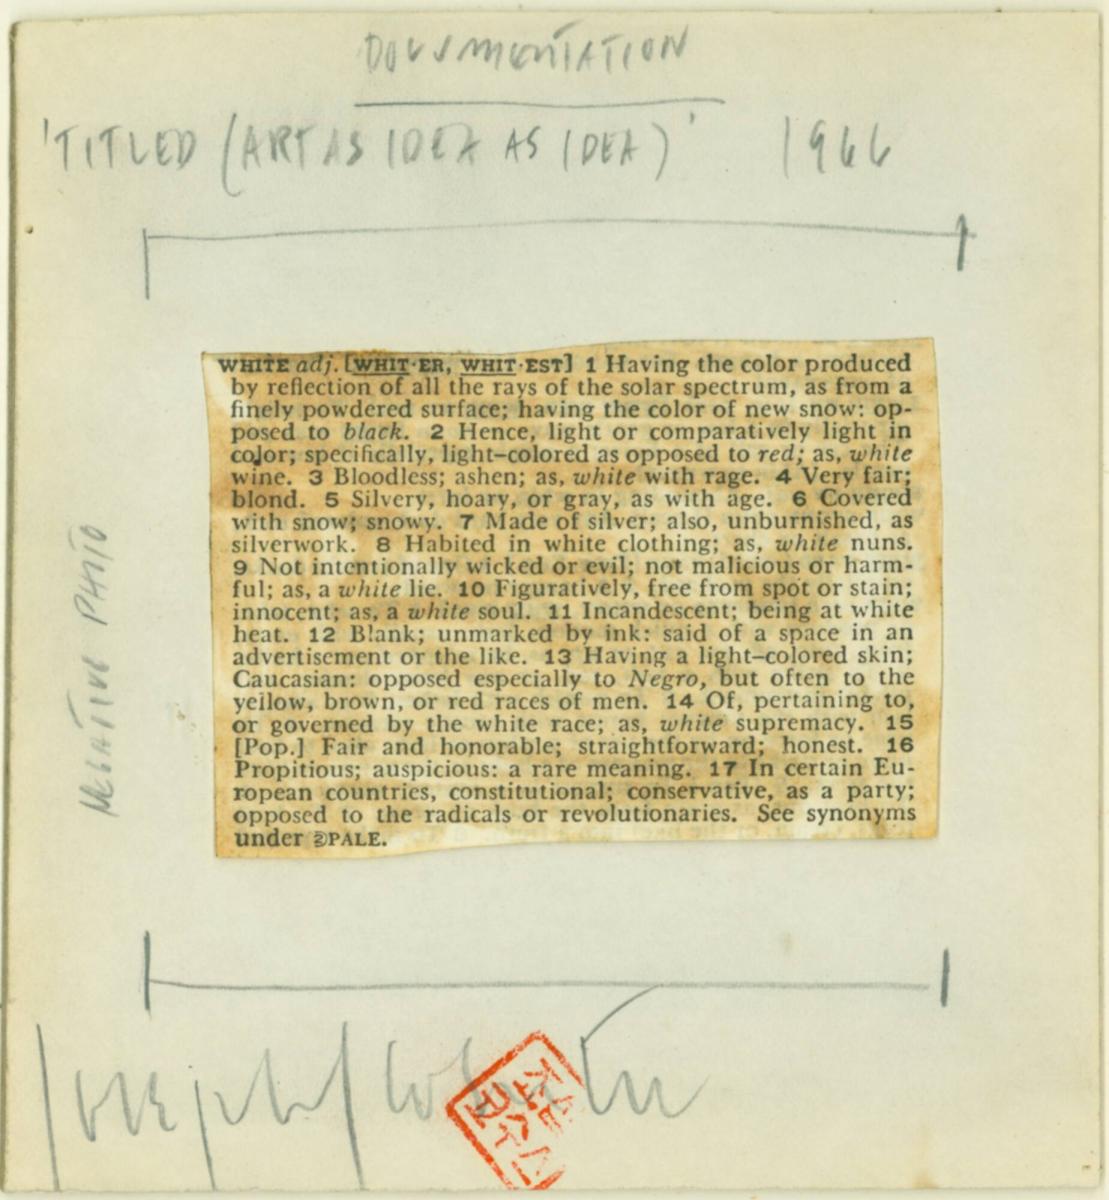 DOCUMENTATION
'TITLED (ART AS IDEA AS IDEA)' 1966
WHITE adj. [WHIT·ER, WHIT·EST] 1 Having the color produced
by reflection of all the rays of the solar spectrum, as from a
finely powdered surface; having the color of new snow: op-
posed to black. 2 Hence, light or comparatively light in
color; specifically, light-colored as opposed to red; as, white
wine. 3 Bloodless; ashen; as, white with rage. 4 Very fair;
blond. 5 Silvery, hoary, or gray, as with age. 6 Covered
with snow; snowy. 7 Made of silver; also, unburnished, as
silverwork. 8 Habited in white clothing; as, white nuns.
9 Not intentionally wicked or evil; not malicious or harm-
ful; as, a white lie. 10 Figuratively, free from spot or stain;
innocent; as, a white soul. 11 Incandescent; being at white
heat. 12 Blank; unmarked by ink: said of a space in an
advertisement or the like. 13 Having a light-colored skin;
Caucasian: opposed especially to Negro, but often to the
yellow, brown, or red races of men. 14 Of, pertaining to,
or governed by the white race; as, white supremacy. 15
[Pop.] Fair and honorable; straightforward; honest. 16
Propitious; auspicious: a rare meaning. 17 In certain Eu-
ropean countries, constitutional; conservative, as a party;
opposed to the radicals or revolutionaries. See synonyms
under ②PALE.
NEGATIVE PHOTO
Joseph Kosuth